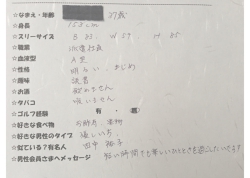 ☆なまえ・年齢 37歳
☆身長 158cm
☆スリーサイズ B 83. W 59. H 85
☆職業 派遣社員
☆血液型 A型
☆性格 明るい、まじめ
☆趣味 読書
☆お酒 飲めません
☆タバコ 吸いません
☆ゴルフ経験 有・無
☆好きな食べ物 お刺身、果物
☆好きな男性のタイプ 優しい人
☆似ている?有名人 田中 裕子
☆男性会員さまへメッセージ 短い時間でも楽しいひとときを過ごしたいです!